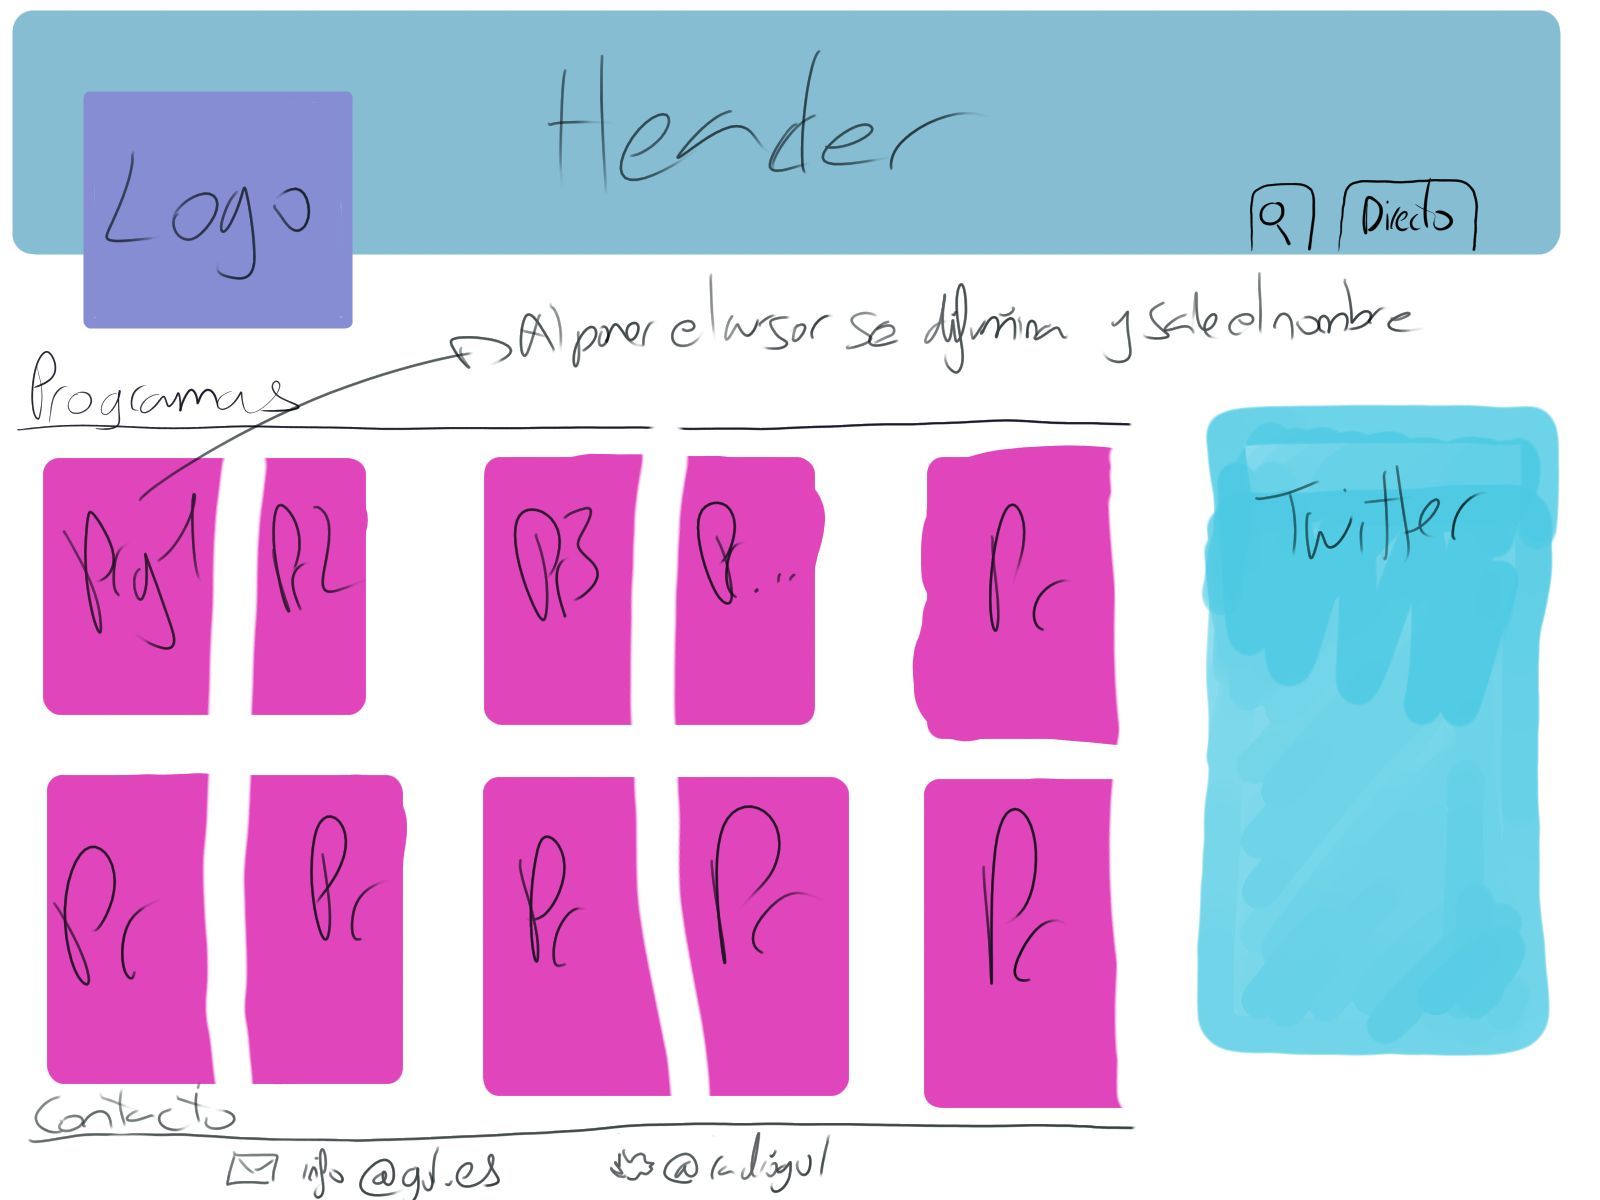 Header
Logo
Directo
Al poner el cursor se difumina y sale el nombre
Programas
Prg1
Pr2
Pr3
Pr...
Pr
Twitter
Pr
Pr
Pr
Pr
Pr
Contacto
info @gul.es
@radiogul